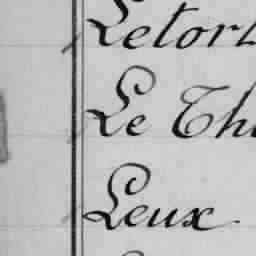 Letort
Le Th
Leux